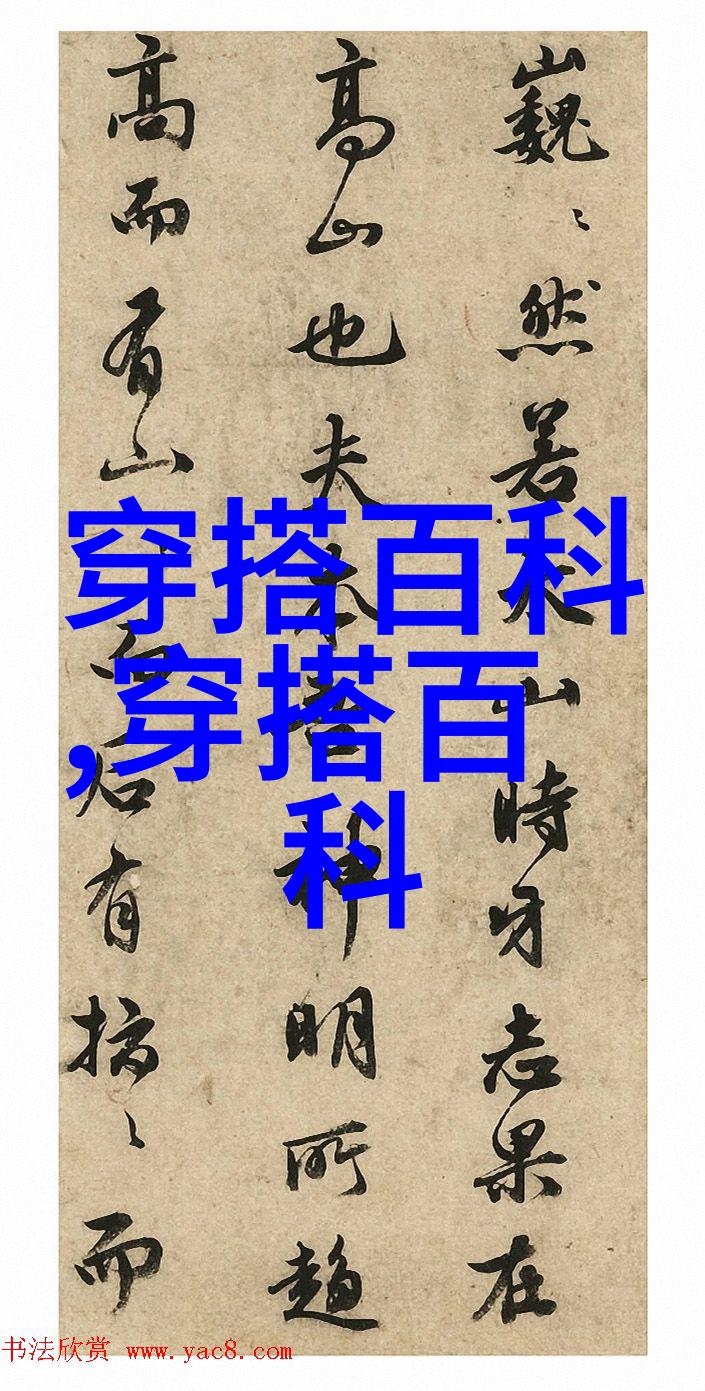 巍〻然若太山時牙志果在
高山也夫本者神明所趨
高而有山后有搞〻而
穿搭百科
,穿搭百
科
书法欣赏 www.yac8.com